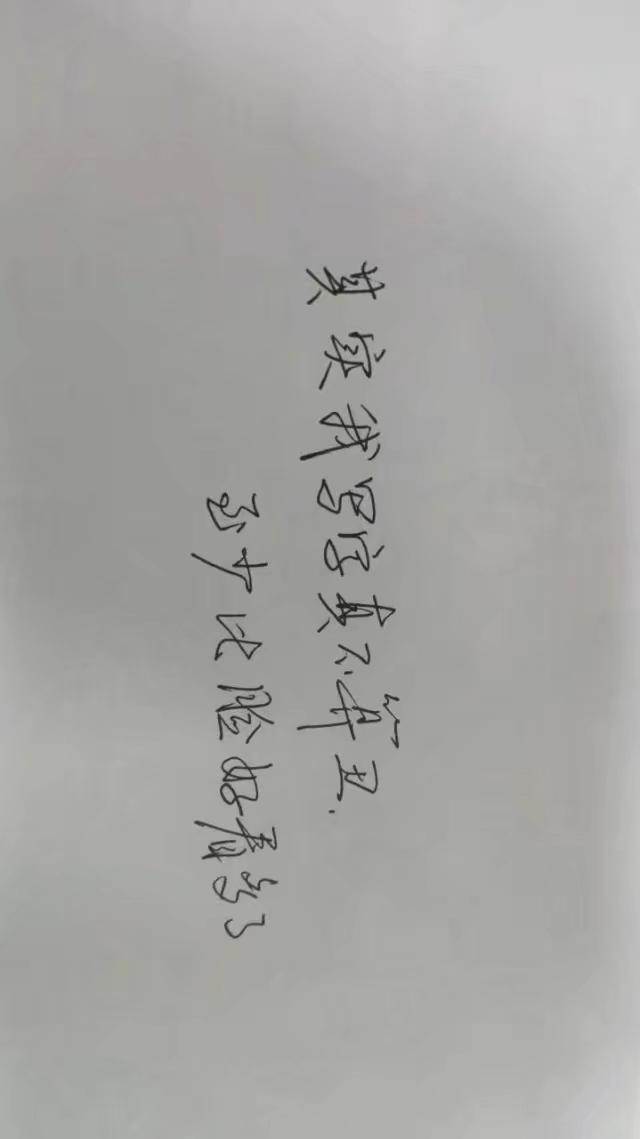 其实我写字真不算丑.
至少比脸好看多了